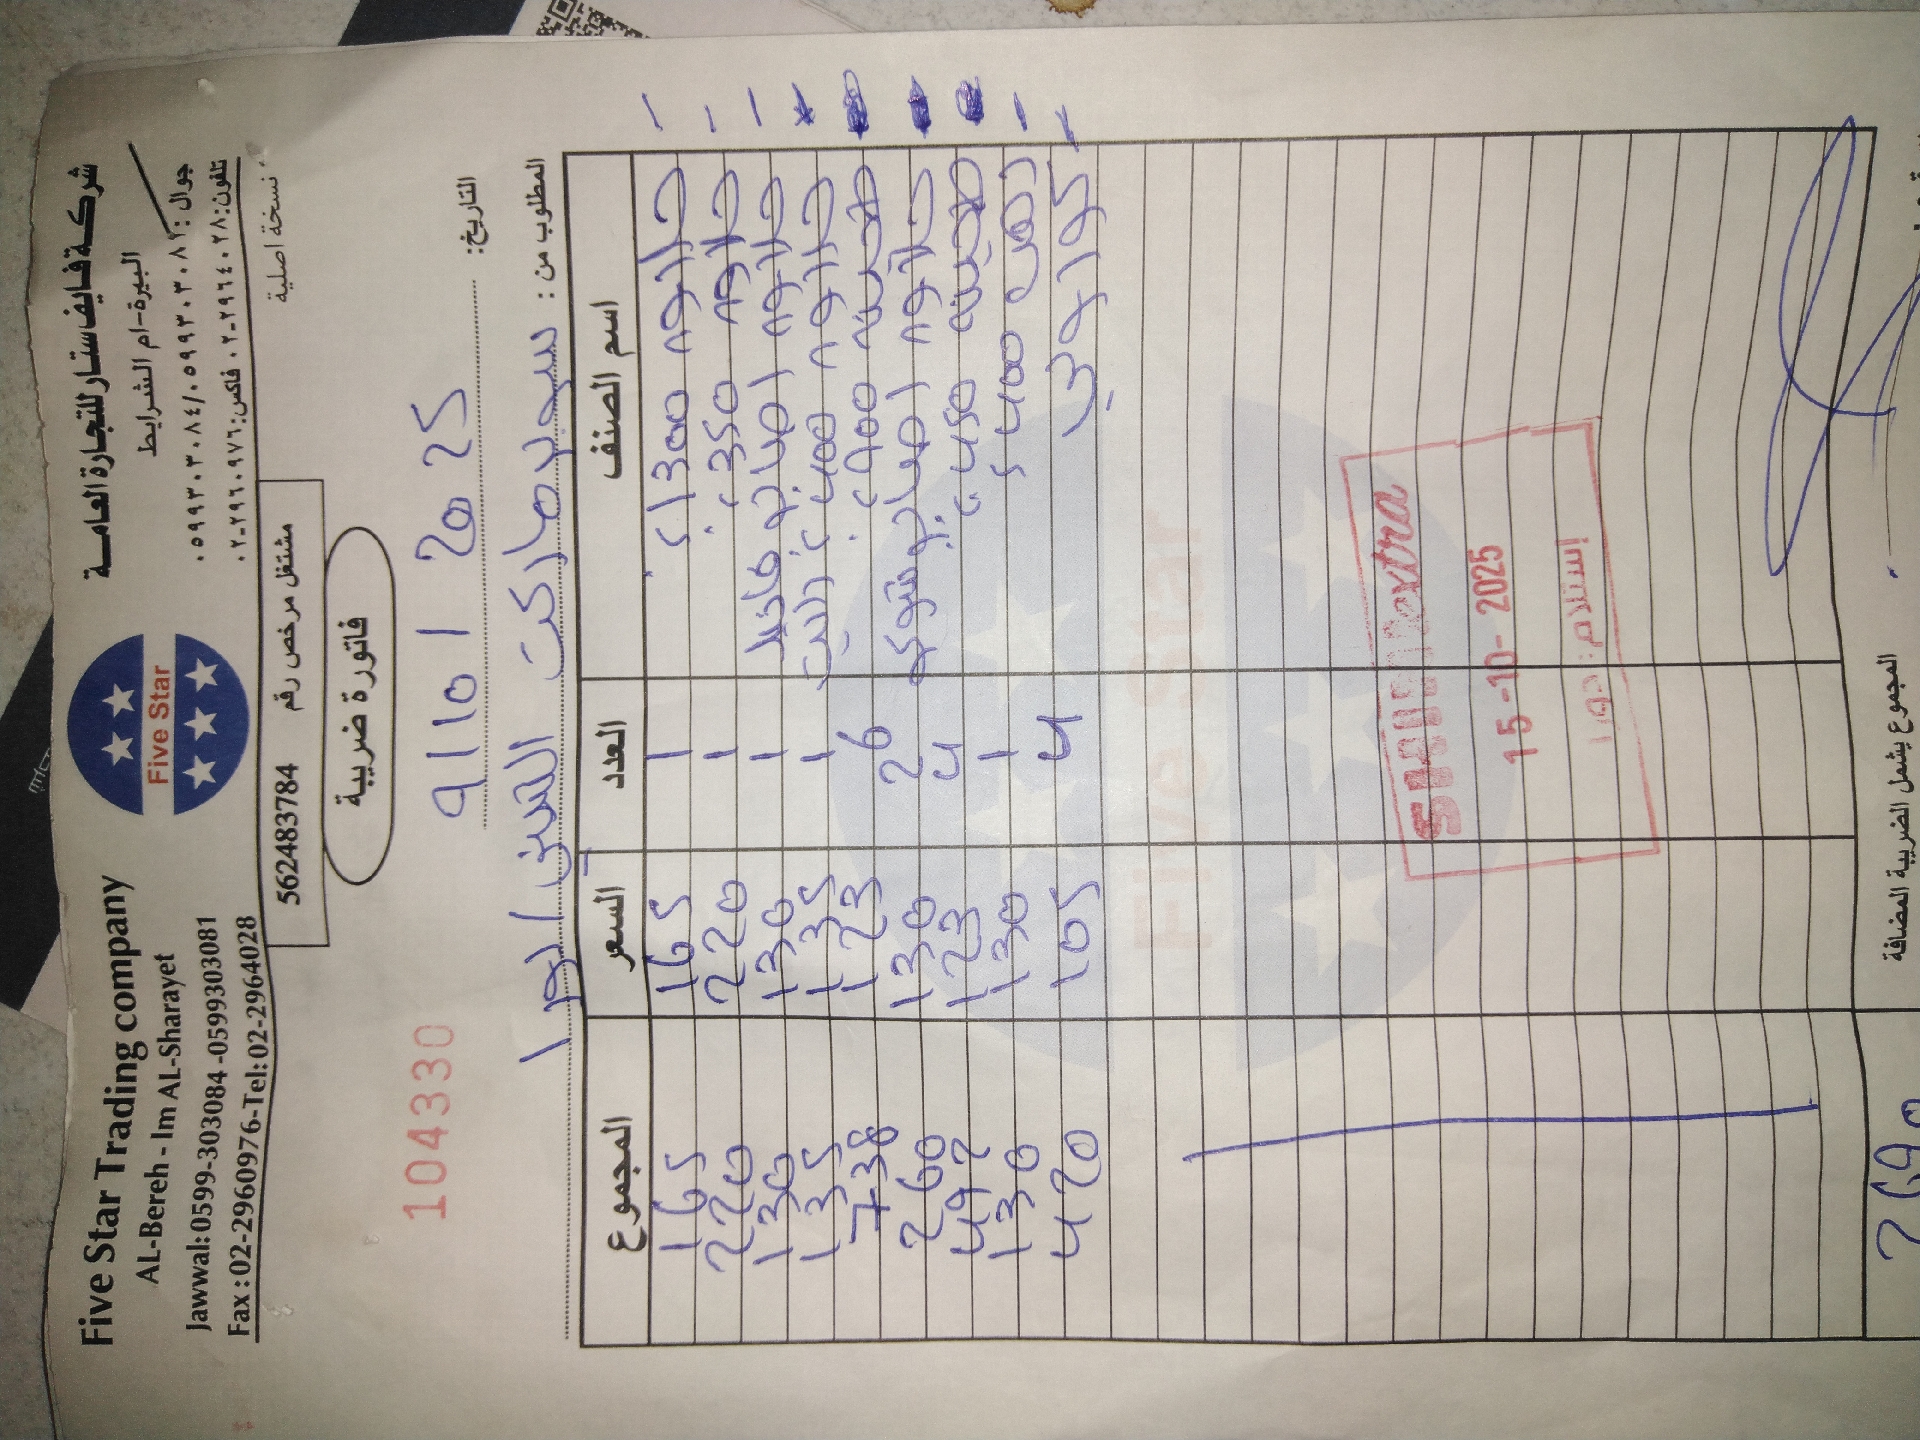 Five Star Trading company
AL-Bereh - Im AL-Sharayet
Jawwal: 0599-303084 -0599303081
Fax : 02-2960976-Tel: 02-2964028
Five Star
شركة فايف ستار للتجارة العامة
البيرة-ام الشرايط
جوال : ٠٥٩٩٣٠٣٠٨٤/٠٥٩٩٣٠٣٠٨١
تلفون: ٠٢-٢٩٦٤٠٢٨ فاكس: ٠٢-٢٩٦٠٩٧٦
مشتغل مرخص رقم 562483784
نسخة اصلية
فاتورة ضريبية
104330
التاريخ: 9 / 10 / 2025
المطلوب من : سوبر ماركت
اسم الصنف العدد السعر المجموع
حلاوة 1300 1 165 165
حلاوة 350 1 220 220
حلاوة اصابع 1 130 130
حلاوة 400 1 135 135
طحينة 900 6 123 738
حلاوة اصابع 2 130 260
طحينة 450 4 123 492
400 1 130 130
4 105 420
Five Star
extra
15 -10- 2025
إستلام: دورا
المجموع يشمل الضريبة المضافة